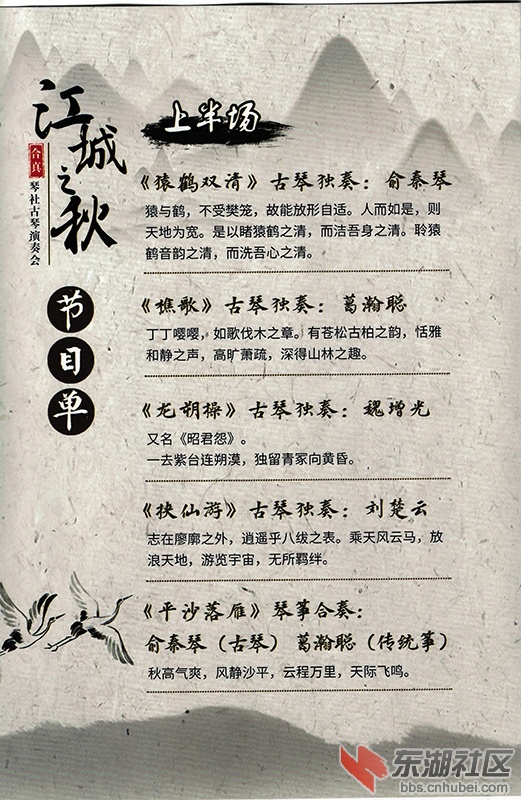 江城之秋
合真
琴社古琴演奏会
节目单
上半场
《猿鹤双清》古琴独奏：俞秦琴
猿与鹤，不受樊笼，故能放形自适。人而如是，则
天地为宽。是以睹猿鹤之清，而洁吾身之清。聆猿
鹤音韵之清，而洗吾心之清。
《樵歌》古琴独奏：葛瀚聪
丁丁嘤嘤，如歌伐木之章。有苍松古柏之韵，恬雅
和静之声，高旷萧疏，深得山林之趣。
《龙朔操》古琴独奏：魏增光
又名《昭君怨》。
一去紫台连朔漠，独留青冢向黄昏。
《挟仙游》古琴独奏：刘楚云
志在廖廓之外，逍遥乎八绂之表。乘天风云马，放
浪天地，游览宇宙，无所羁绊。
《平沙落雁》琴筝合奏：
俞秦琴（古琴）葛瀚聪（传统筝）
秋高气爽，风静沙平，云程万里，天际飞鸣。
东湖社区
bbs.cnhubei.com